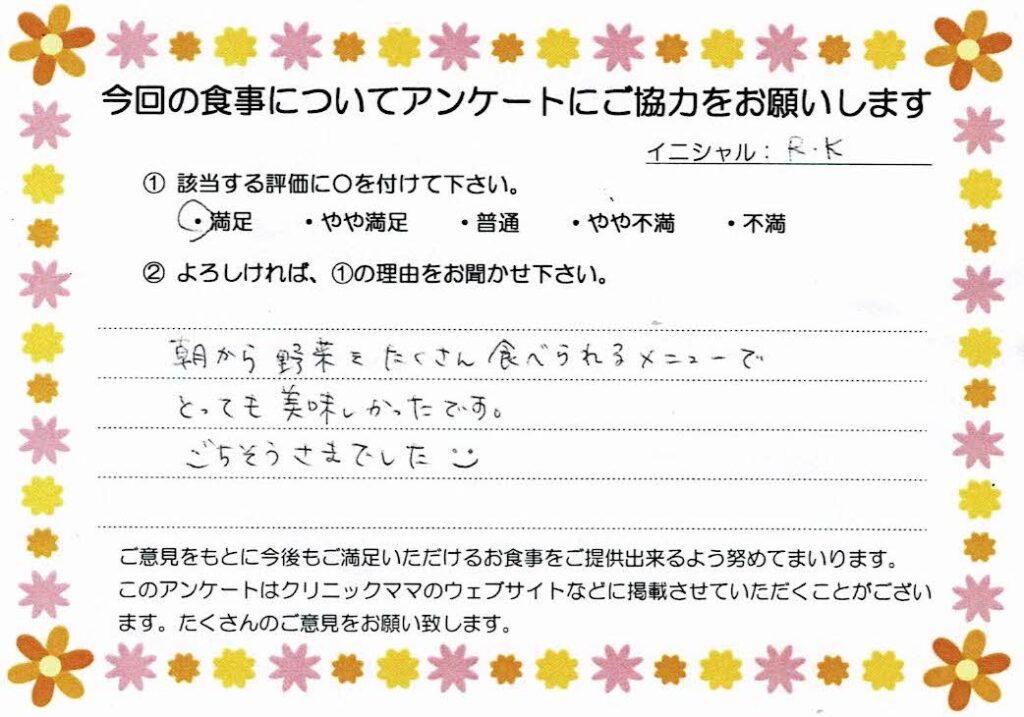 今回の食事についてアンケートにご協力をお願いします
イニシャル： R.K
① 該当する評価に〇を付けて下さい。
・満足 ・やや満足 ・普通 ・やや不満 ・不満
② よろしければ、①の理由をお聞かせ下さい。
朝から野菜をたくさん食べられるメニューで
とっても美味しかったです。
ごちそうさまでした
ご意見をもとに今後もご満足いただけるお食事をご提供出来るよう努めてまいります。
このアンケートはクリニックママのウェブサイトなどに掲載させていただくことがござい
ます。たくさんのご意見をお願い致します。